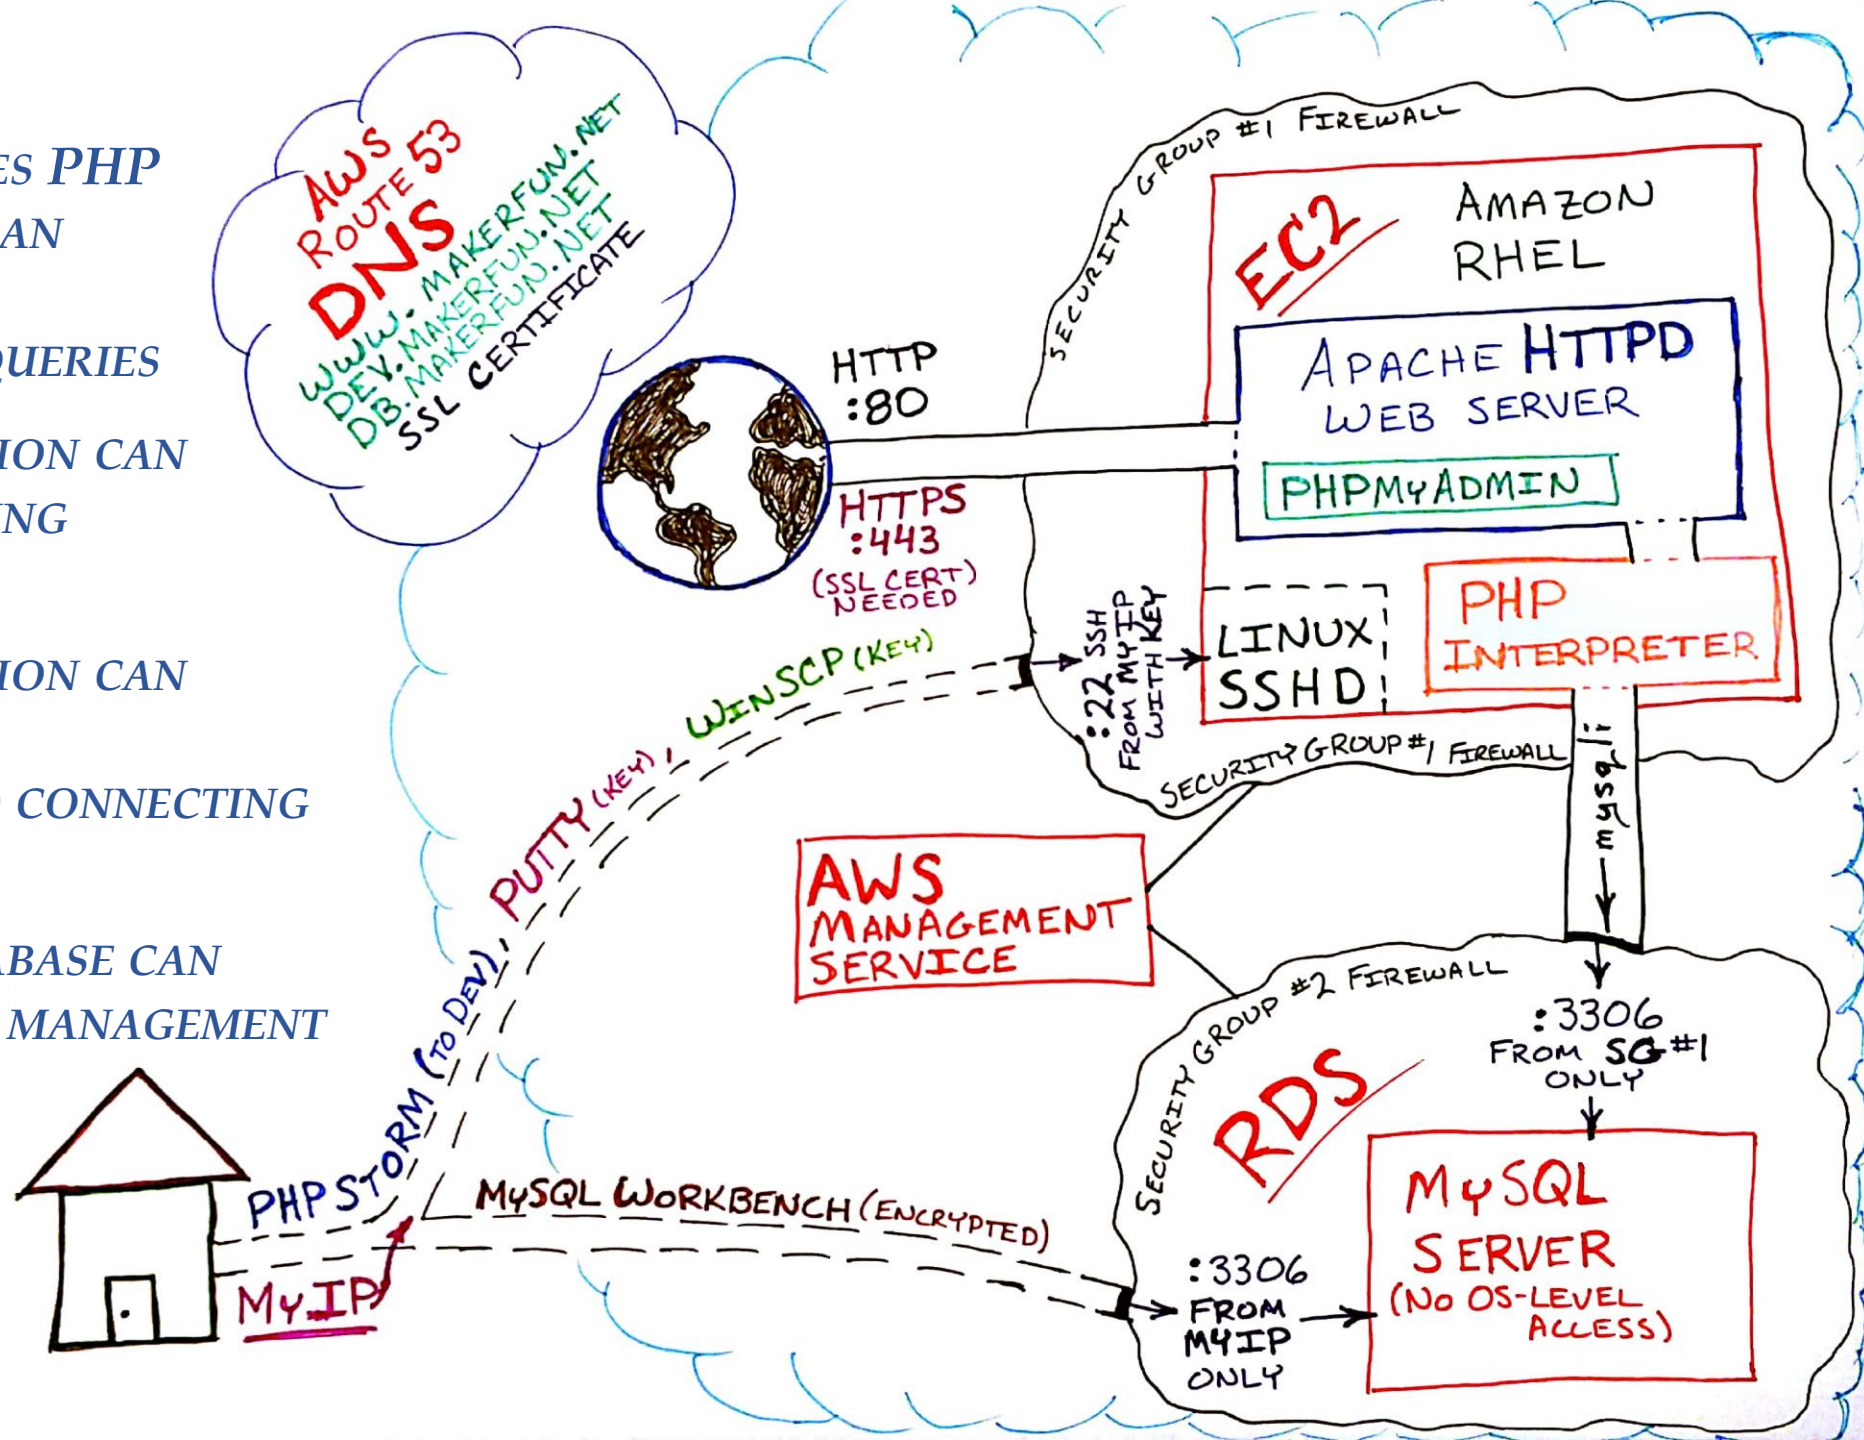 ES PHP
AN
QUERIES
ION CAN
NG
ION CAN
CONNECTING
ABASE CAN
MANAGEMENT
AWS
ROUTE 53
DNS
WWW.MAKERFUN.NET
DEV.MAKERFUN.NET
DB.MAKERFUN.NET
SSL CERTIFICATE
HTTP
:80
HTTPS
:443
(SSL CERT)
NEEDED
SECURITY GROUP #1 FIREWALL
EC2
AMAZON
RHEL
APACHE HTTPD
WEB SERVER
PHPMYADMIN
PHP
INTERPRETER
LINUX
SSHD
:22 SSH
FROM MYIP
WITH KEY
SECURITY GROUP #1 FIREWALL
mysqli
PHPSTORM (TO DEV), PUTTY (KEY), WINSCP (KEY)
AWS
MANAGEMENT
SERVICE
SECURITY GROUP #2 FIREWALL
:3306
FROM SG #1
ONLY
RDS
MySQL
SERVER
(NO OS-LEVEL
ACCESS)
MySQL WORKBENCH (ENCRYPTED)
:3306
FROM
MYIP
ONLY
MyIP